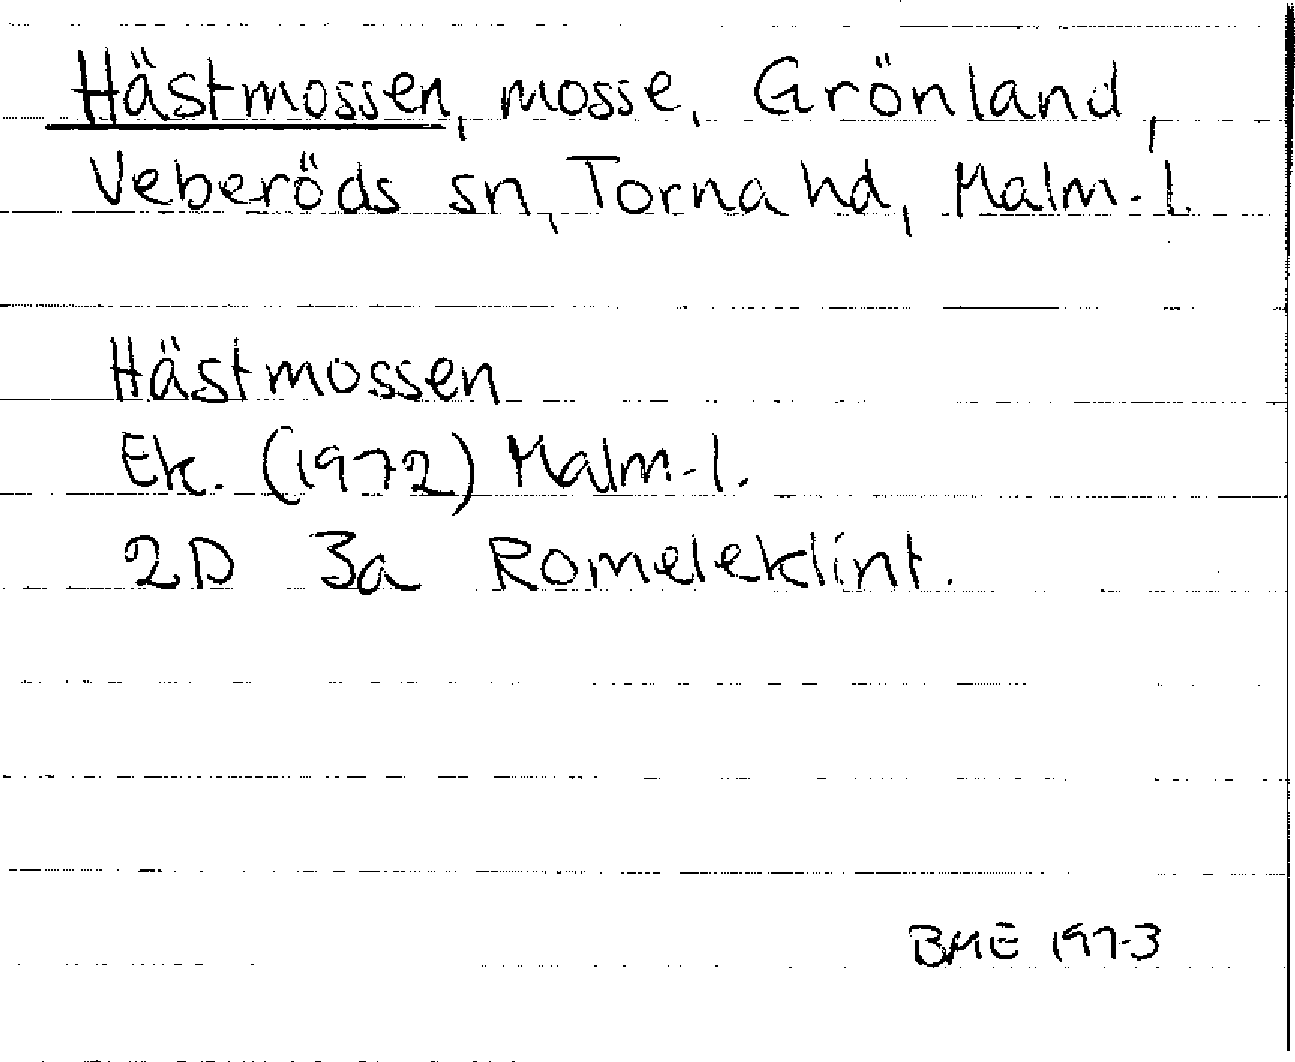 Hästmossen, mosse, Grönland,
Veberöds sn, Torna hd, Malm-l.
Hästmossen
Ek. (1972) Malm-l.
2D 3a Romeleklint.
BME 1973